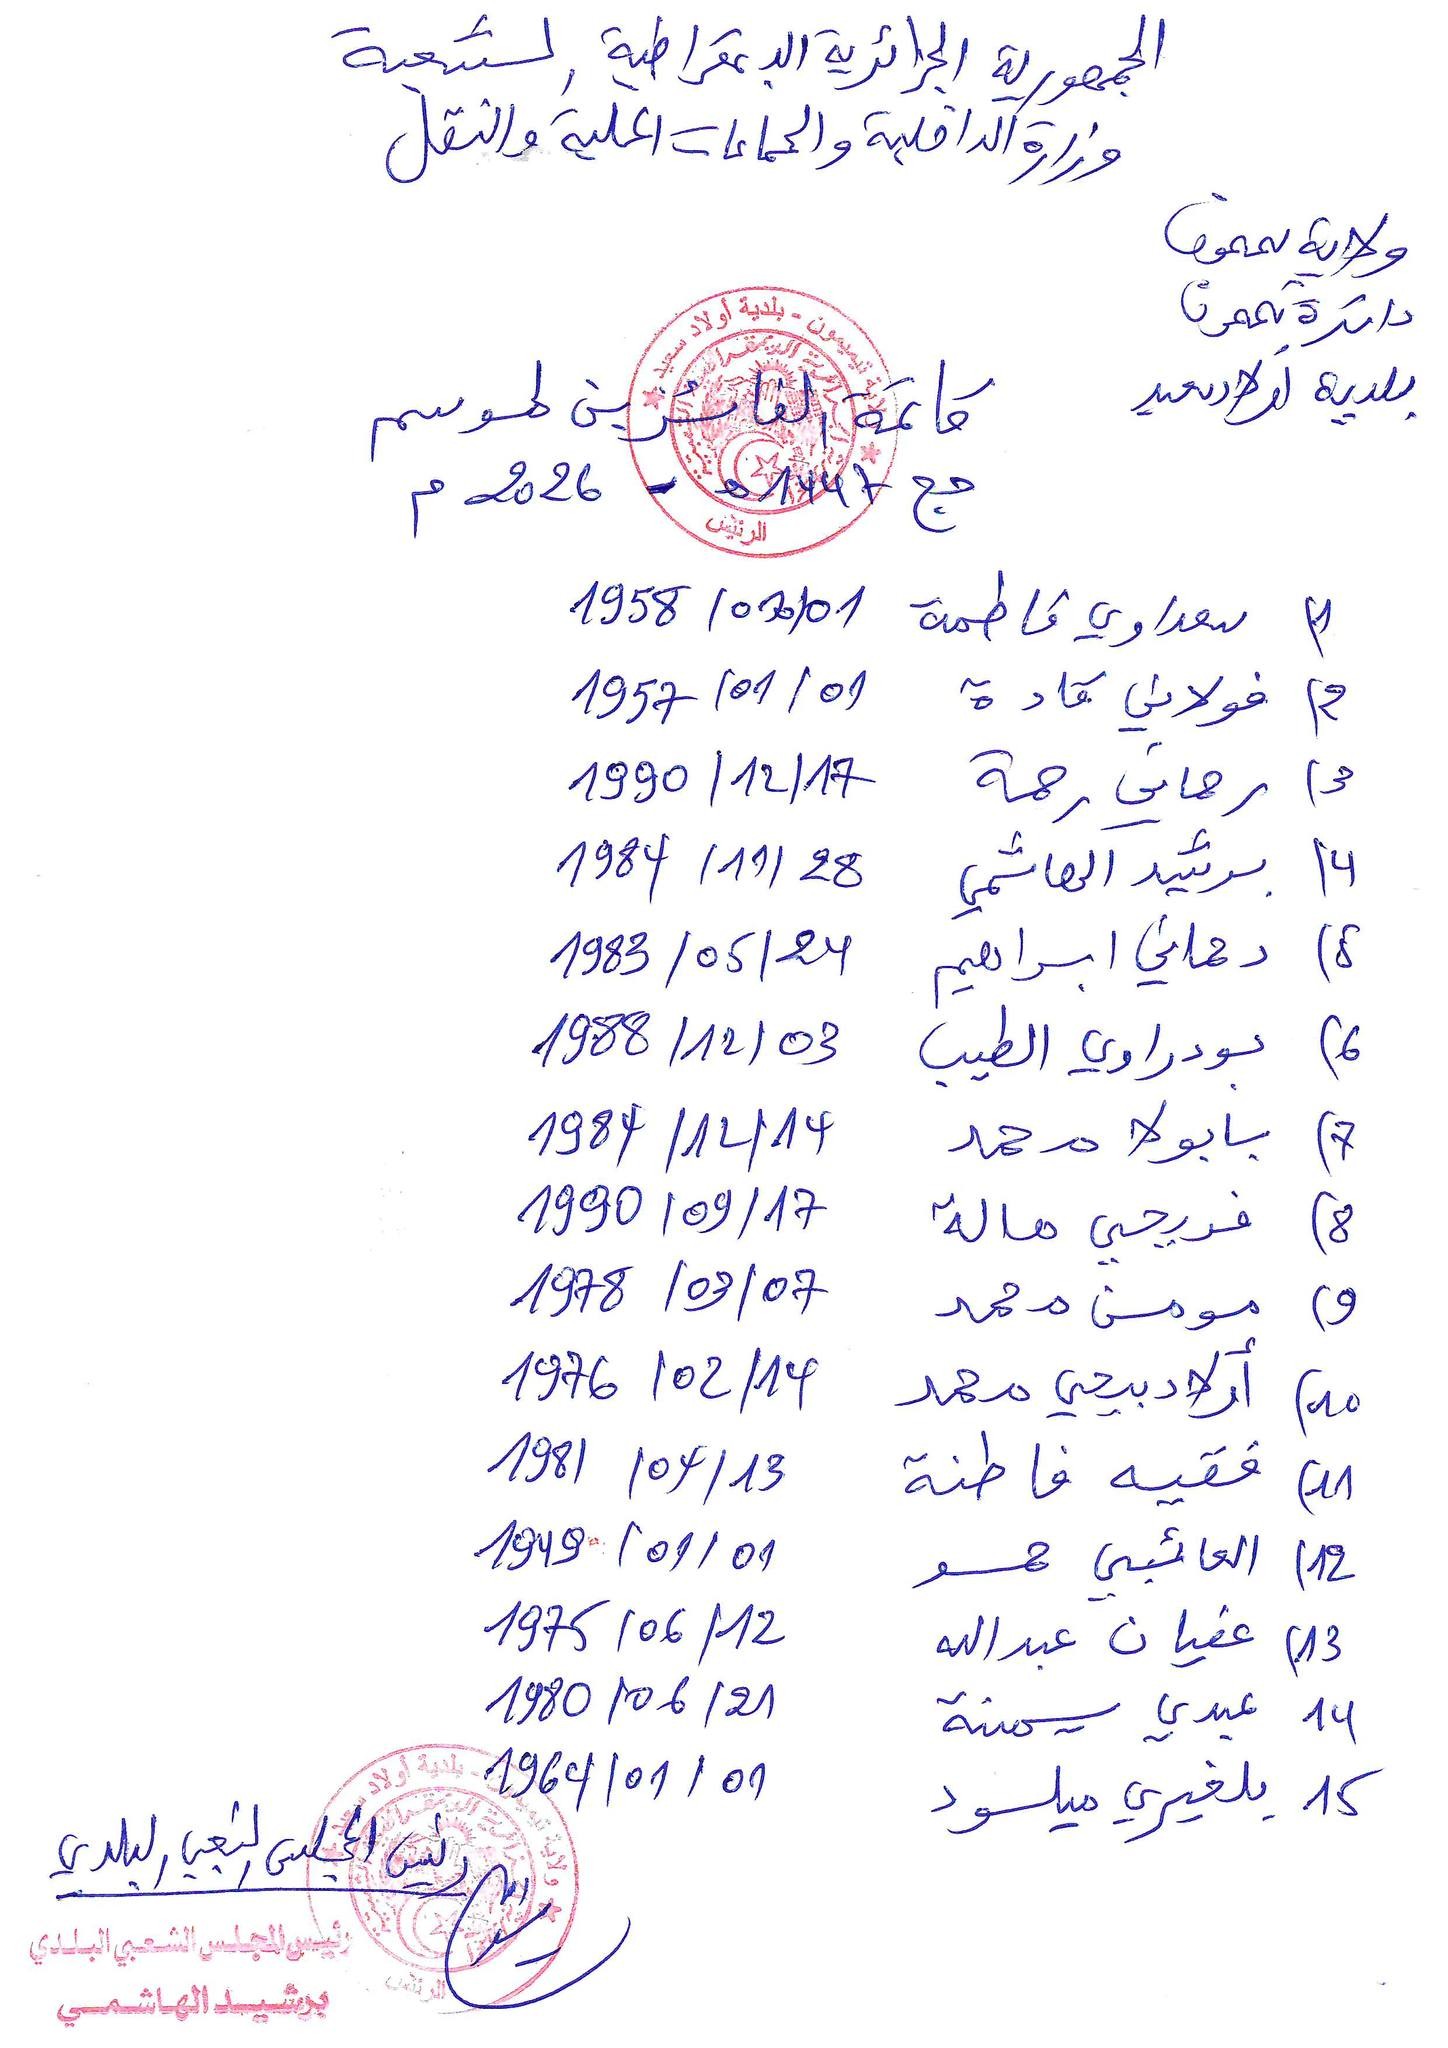 الجمهورية الجزائرية الديمقراطية الشعبية
وزارة الداخلية والجماعات المحلية والنقل
ولاية تيميمون
دائرة تيميمون
بلدية أولاد سعيد
ولاية تيميمون - بلدية أولاد سعيد
الرئيس
قائمة الفائزين لموسم
حج 1447 ه - 2026 م
1) سعداوي فاطمة 01/03/1958
2) فولاني قادة 01/01/1957
3) رحماني رحمة 17/12/1990
4) برشيد الهاشمي 28/11/1984
5) دحماني ابراهيم 24/05/1983
6) بودراوي الطيب 03/12/1988
7) بابولا محمد 14/12/1984
8) فريحي هالة 17/09/1990
9) مومن محمد 07/03/1978
10) أولاد يحي محمد 14/02/1976
11) فقيه فاطنة 13/04/1981
12) العائبي حمو 01/01/1949
13) عفيان عبدالله 12/06/1975
14 عبدي يمينة 21/06/1980
15 بلغيري ميلود 01/01/1964
رئيس المجلس الشعبي البلدي
ولاية تيميمون - بلدية أولاد سعيد
الرئيس
رئيس المجلس الشعبي البلدي
برشيد الهاشمي